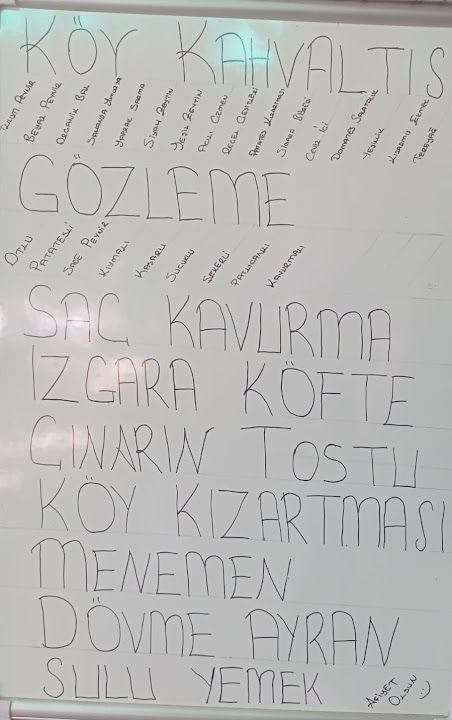 KÖY KAHVALTIS
TULUM PEYNİR
BEYAZ PEYNİR
ORGANİK BAL
SAHANDA YUMURTA
YAPRAK SARMA
SİYAH ZEYTİN
YEŞİL ZEYTİN
ACILI ÇEMEN
REÇEL ÇEŞİTLERİ
PATATES KIZARTMASI
SİGARA BÖREĞİ
CEVİZ İÇİ
DOMATES SALATALIK
YEŞİLLİK
KIZARMIŞ EKMEK
TEREYAĞ
GÖZLEME
OTLU
PATATESLİ
SADE PEYNİR
KIYMALI
KAŞARLI
SUCUKLU
ŞEKERLİ
PATLICANLI
KAVURMALI
SAÇ KAVURMA
IZGARA KÖFTE
ÇINARIN TOSTU
KÖY KIZARTMASI
MENEMEN
DÖVME AYRAN
SULU YEMEK
AFİYET
OLSUN